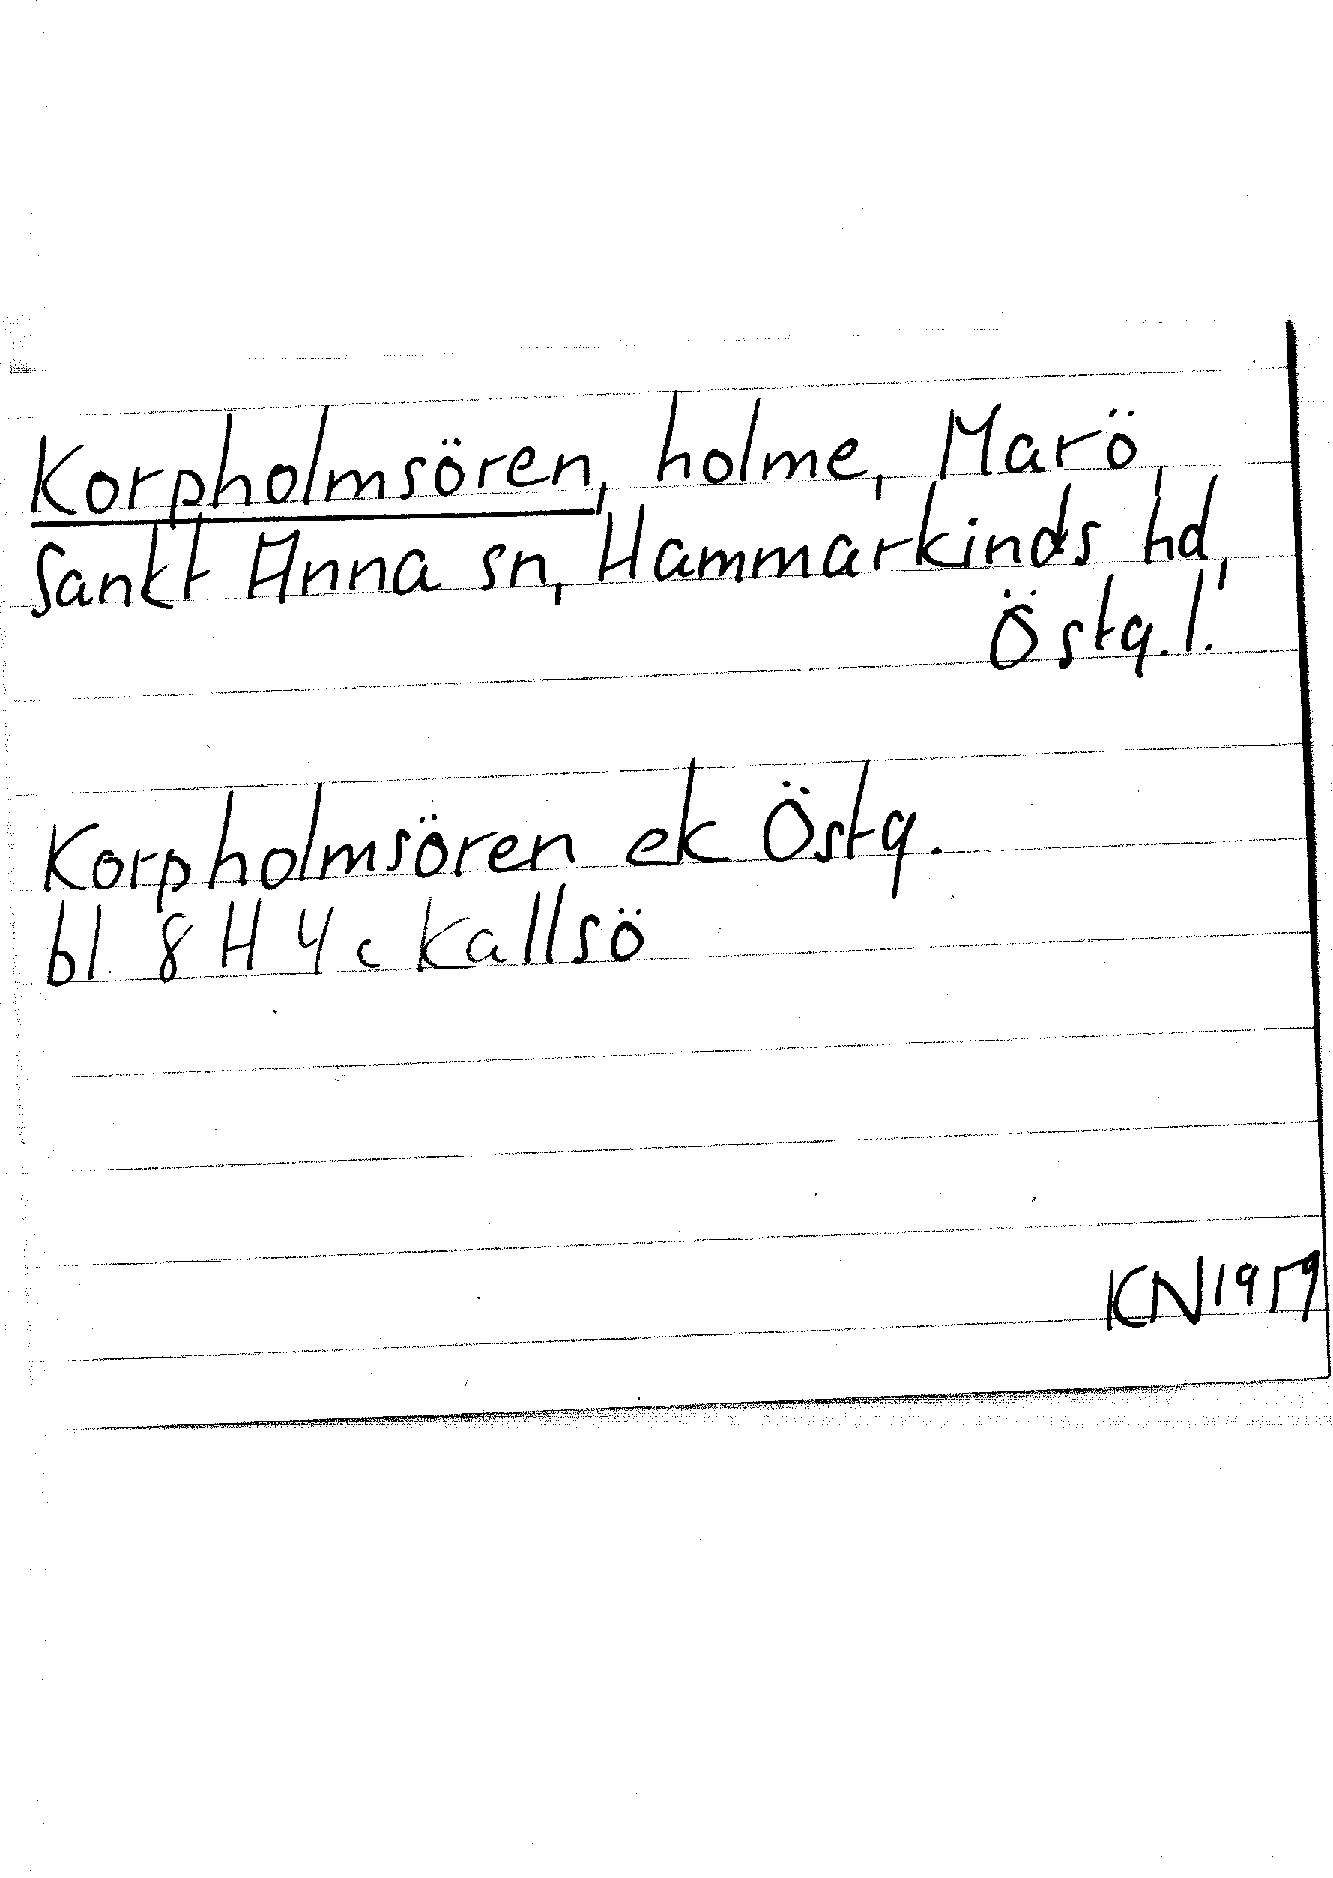 Korpholmsören, holme, Marö,
Sankt Anna sn, Hammarkinds hd,
Östg. l.
Korpholmsören ek Östg.
bl 8 H 4 c Kallsö
KN 1979